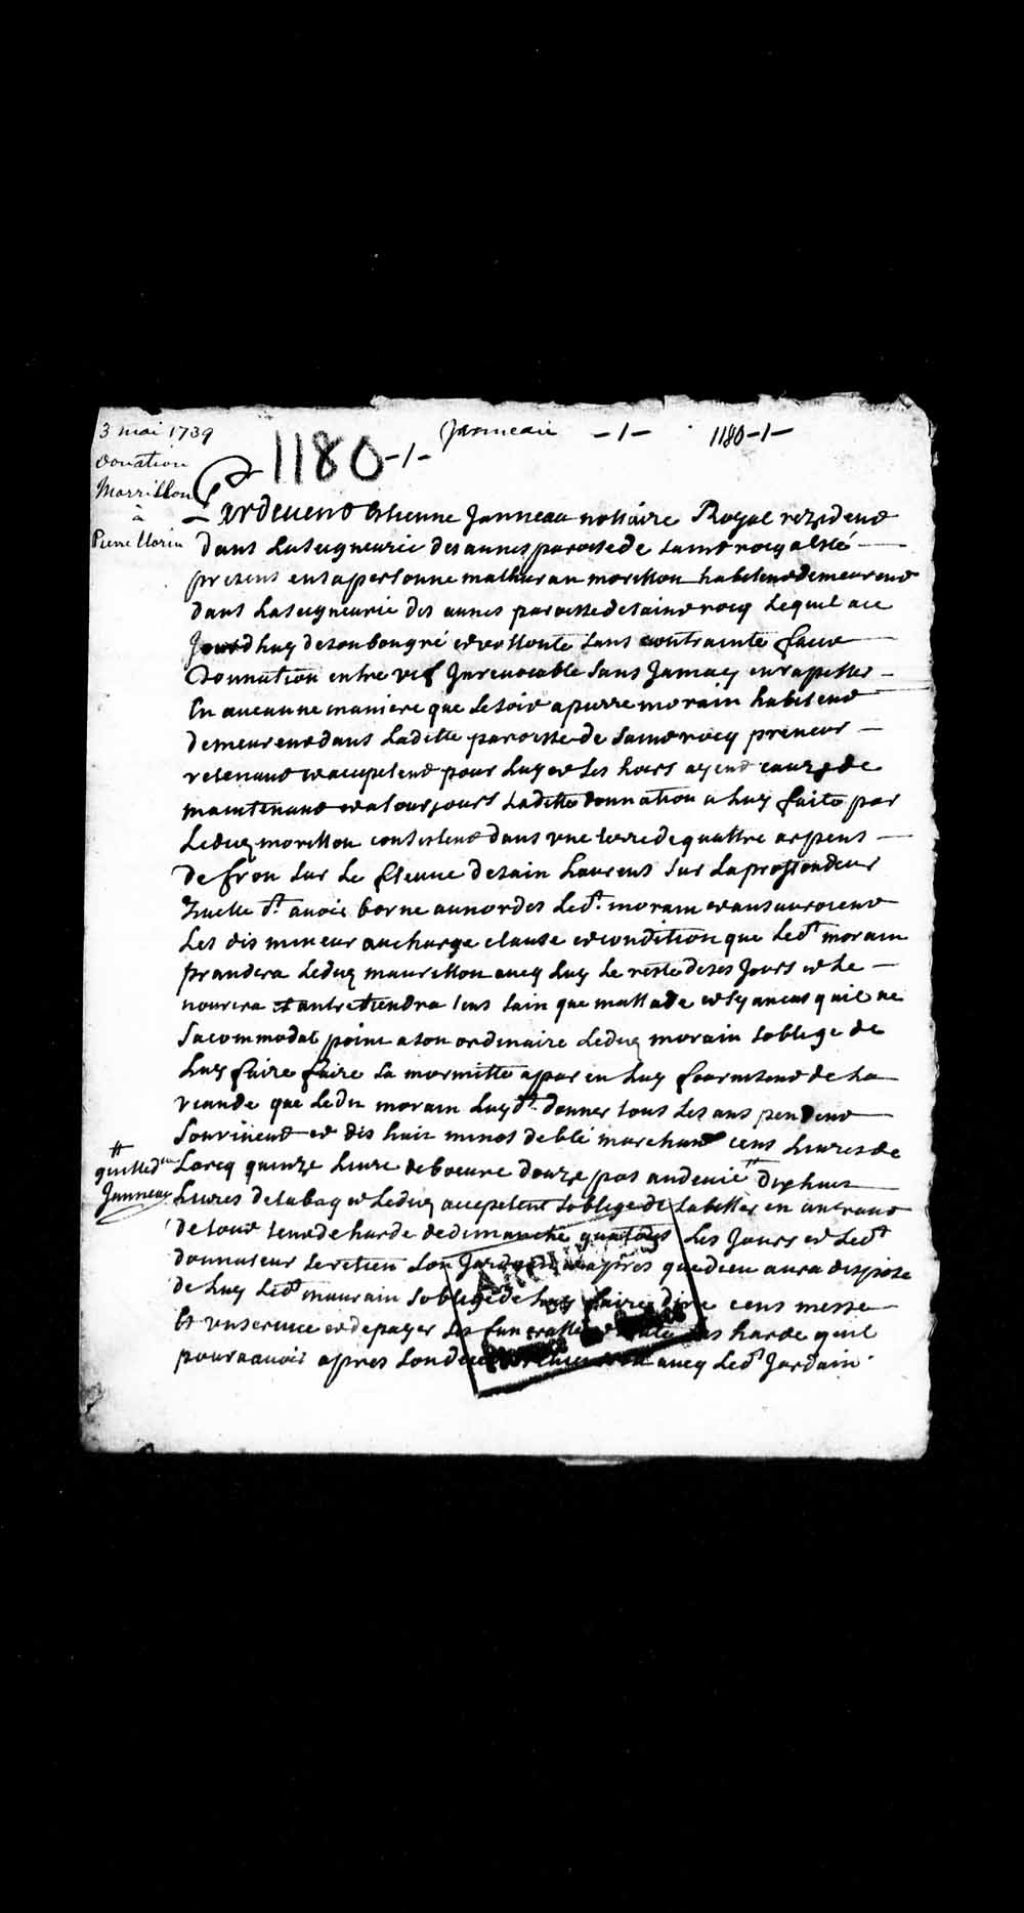 3 mai 1739
Janneau -1- 1180-1-
donation
1180-1-
Marrillon
à
Pierre Morin
Pardevent Estienne Janneau nottaire Royal rezident
dans La seigneurie des aunes paroisse de saint rocq
present en sa personne mathuran morillon habitend demeurend
dans La seigneurie des aunes paroisse de saint rocq Lequel au
Jourd huy de son bon gré et vollonté sans contrainte faict
Donnation entre vif Jnrevocable sans Jamais en rappeller
En aucunne maniere que se soit a pierre morain habitend
demeurend dans Laditte paroisse de saint rocq preneur
retenant et accepetend pour Luy et ses hoirs ayend cauze de
maintenant et a tourjours Laditte donnation a Luy faite par
Ledit morillon consistend dans vne terre de quattre arpens
de fron sur Le fleuve de sain Laurens sur La proffondeur
quelle dt avoir borne au nordes Ledt. morain et au surouend
Les dis mineur au charge clause et condition que Ledt morain
prandera Ledit maurillon avec Luy Le reste de ses Jours et Le
nourira et antretiendra tens sain que mallade et sy ancas quil ne
sacommodat point a son ordinaire Ledit morain soblige de
Luy faire faire sa mormitte apar en Luy fournisend de La
viande que Ledit morain Luy dt donner tous Les ans pendend
son vivend et dis huit minot de blé marchand cens Livres de
Lorcq quinze Livre de beurre douze pos audevie # dix huit
#
Janneau
Livres de tabaq et Ledit accepetent soblige de Labiller en antrant
de tout tend de harde de dimanche que tous Les Jours et Ledt
donnateur se retien son Jardain et apres que dieu aura dispozé
de Luy Ledt maurain soblige de Luy faire dire cens messe
Et vn service et de payer ses funeralle et toute ses harde quil
poura avoir apres son avec Ledt Jardain